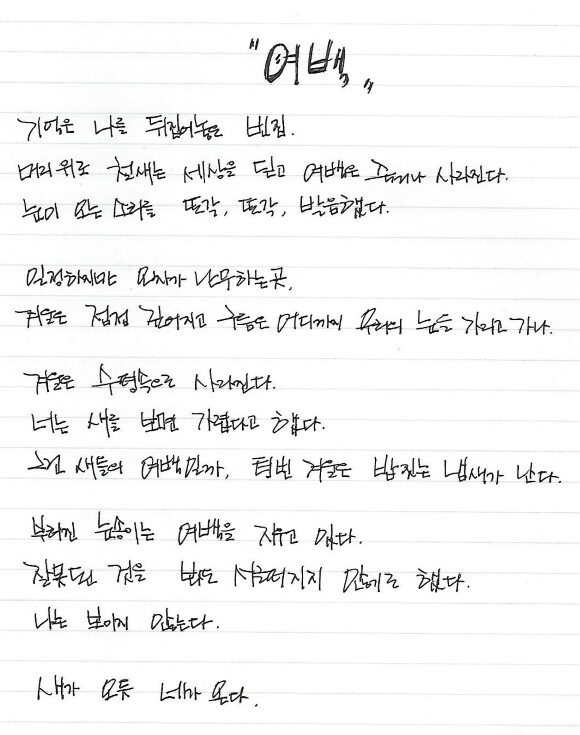 "여백"
기억은 나를 뒤집어놓은 빈집.
머리위로 철새는 세상을 딛고 여백은 사라진다.
눈이 오는 소리를 또각, 또각, 발음했다.
일정하지만 모자가 난무하는곳,
겨울은 점점 깊어지고 구름은 어디까지 우리의 눈을 가리고 가나.
겨울은 수평속으로 사라진다.
너는 새를 보면 가렵다고 했다.
그건 새들의 여백일까, 텅빈 겨울은 밥짓는 냄새가 난다.
부러진 눈송이는 여백을 지우고 있다.
잘못된 것을 봐도 않기로 했다.
나는 보이지 않는다.
새가 모듯 네가 온다.